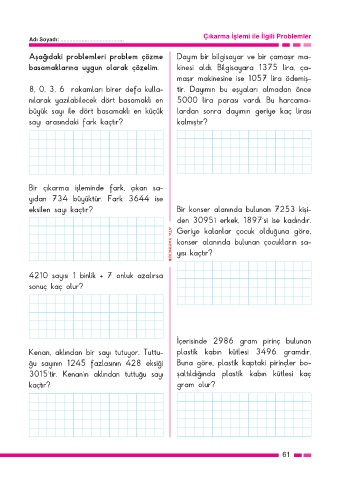 Adı Soyadı: ......................................
Çıkarma İşlemi ile İlgili Problemler
Aşağıdaki problemleri problem çözme
basamaklarına uygun olarak çözelim.
8, 0, 3, 6 rakamları birer defa kulla-
nılarak yazılabilecek dört basamaklı en
büyük sayı ile dört basamaklı en küçük
sayı arasındaki fark kaçtır?
Bir çıkarma işleminde fark, çıkan sa-
yıdan 734 büyüktür. Fark 3644 ise
eksilen sayı kaçtır?
4210 sayısı 1 binlik + 7 onluk azalırsa
sonuç kaç olur?
Kenan, aklından bir sayı tutuyor. Tuttu-
ğu sayının 1245 fazlasının 428 eksiği
3015'tir. Kenan'ın aklından tuttuğu sayı
kaçtır?
Dayım bir bilgisayar ve bir çamaşır ma-
kinesi aldı. Bilgisayara 1375 lira, ça-
maşır makinesine ise 1057 lira ödemiş-
tir. Dayımın bu eşyaları almadan önce
5000 lira parası vardı. Bu harcama-
lardan sonra dayımın geriye kaç lirası
kalmıştır?
Bir konser alanında bulunan 7253 kişi-
den 3095'i erkek, 1897'si ise kadındır.
Geriye kalanlar çocuk olduğuna göre,
konser alanında bulunan çocukların sa-
yısı kaçtır?
İçerisinde 2986 gram pirinç bulunan
plastik kabın kütlesi 3496 gramdır.
Buna göre, plastik kaptaki pirinçler bo-
şaltıldığında plastik kabın kütlesi kaç
gram olur?
61